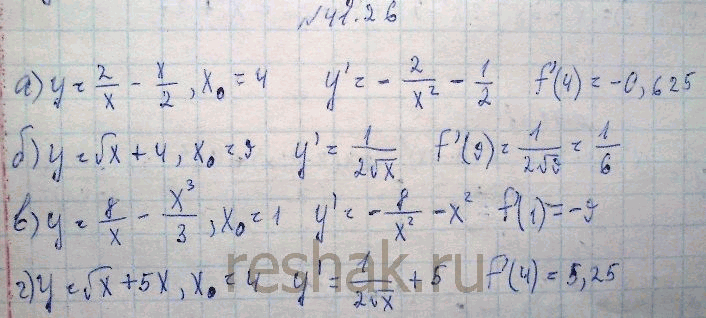 №41.26
а) y = 2/x - x/2, x₀ = 4 y' = - 2/x² - 1/2 f'(4) = -0,625
б) y = √x + 4, x₀ = 9 y' = 1/(2√x) f'(9) = 1/(2√9) = 1/6
в) y = 8/x - x³/3, x₀ = 1 y' = - 8/x² - x² f'(1) = -9
г) y = √x + 5x, x₀ = 4 y' = 1/(2√x) + 5 f'(4) = 5,25
reshak.ru